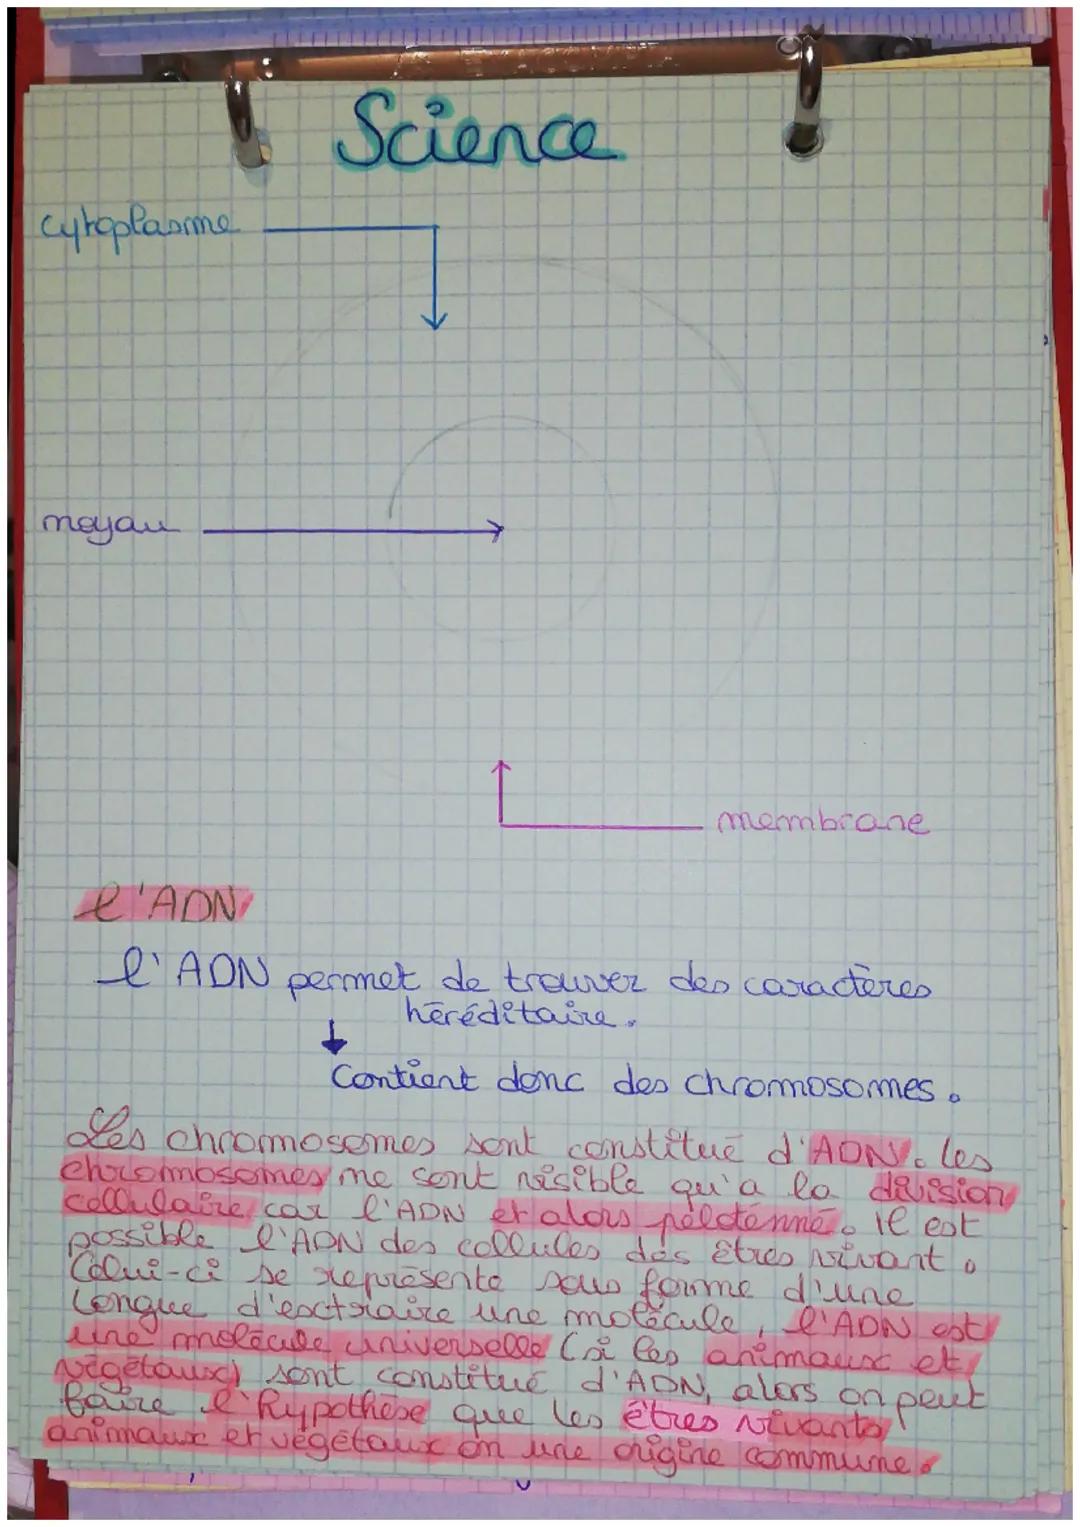 Science
cytoplasme
noyau
membrane
l'ADN
l'ADN permet de trouver des caractères
héréditaire.
Contient donc des chromosomes.
Les chromosomes sont constitué d'ADN. les
chromosomes ne sont visible qu'a la division
cellulaire car l'ADN et alors pelotenné. Il est
possible l'ADN des cellules des êtres vivant.
Celui-ci se représente sous forme d'une
Longue d'extraire une molécule, l'ADN est
une molécule universelle (si les animaux et
végétaux) sont constitué d'ADN, alors on peut
faire l'hypothèse que les êtres vivants
animaux et végétaux on une origine commune.